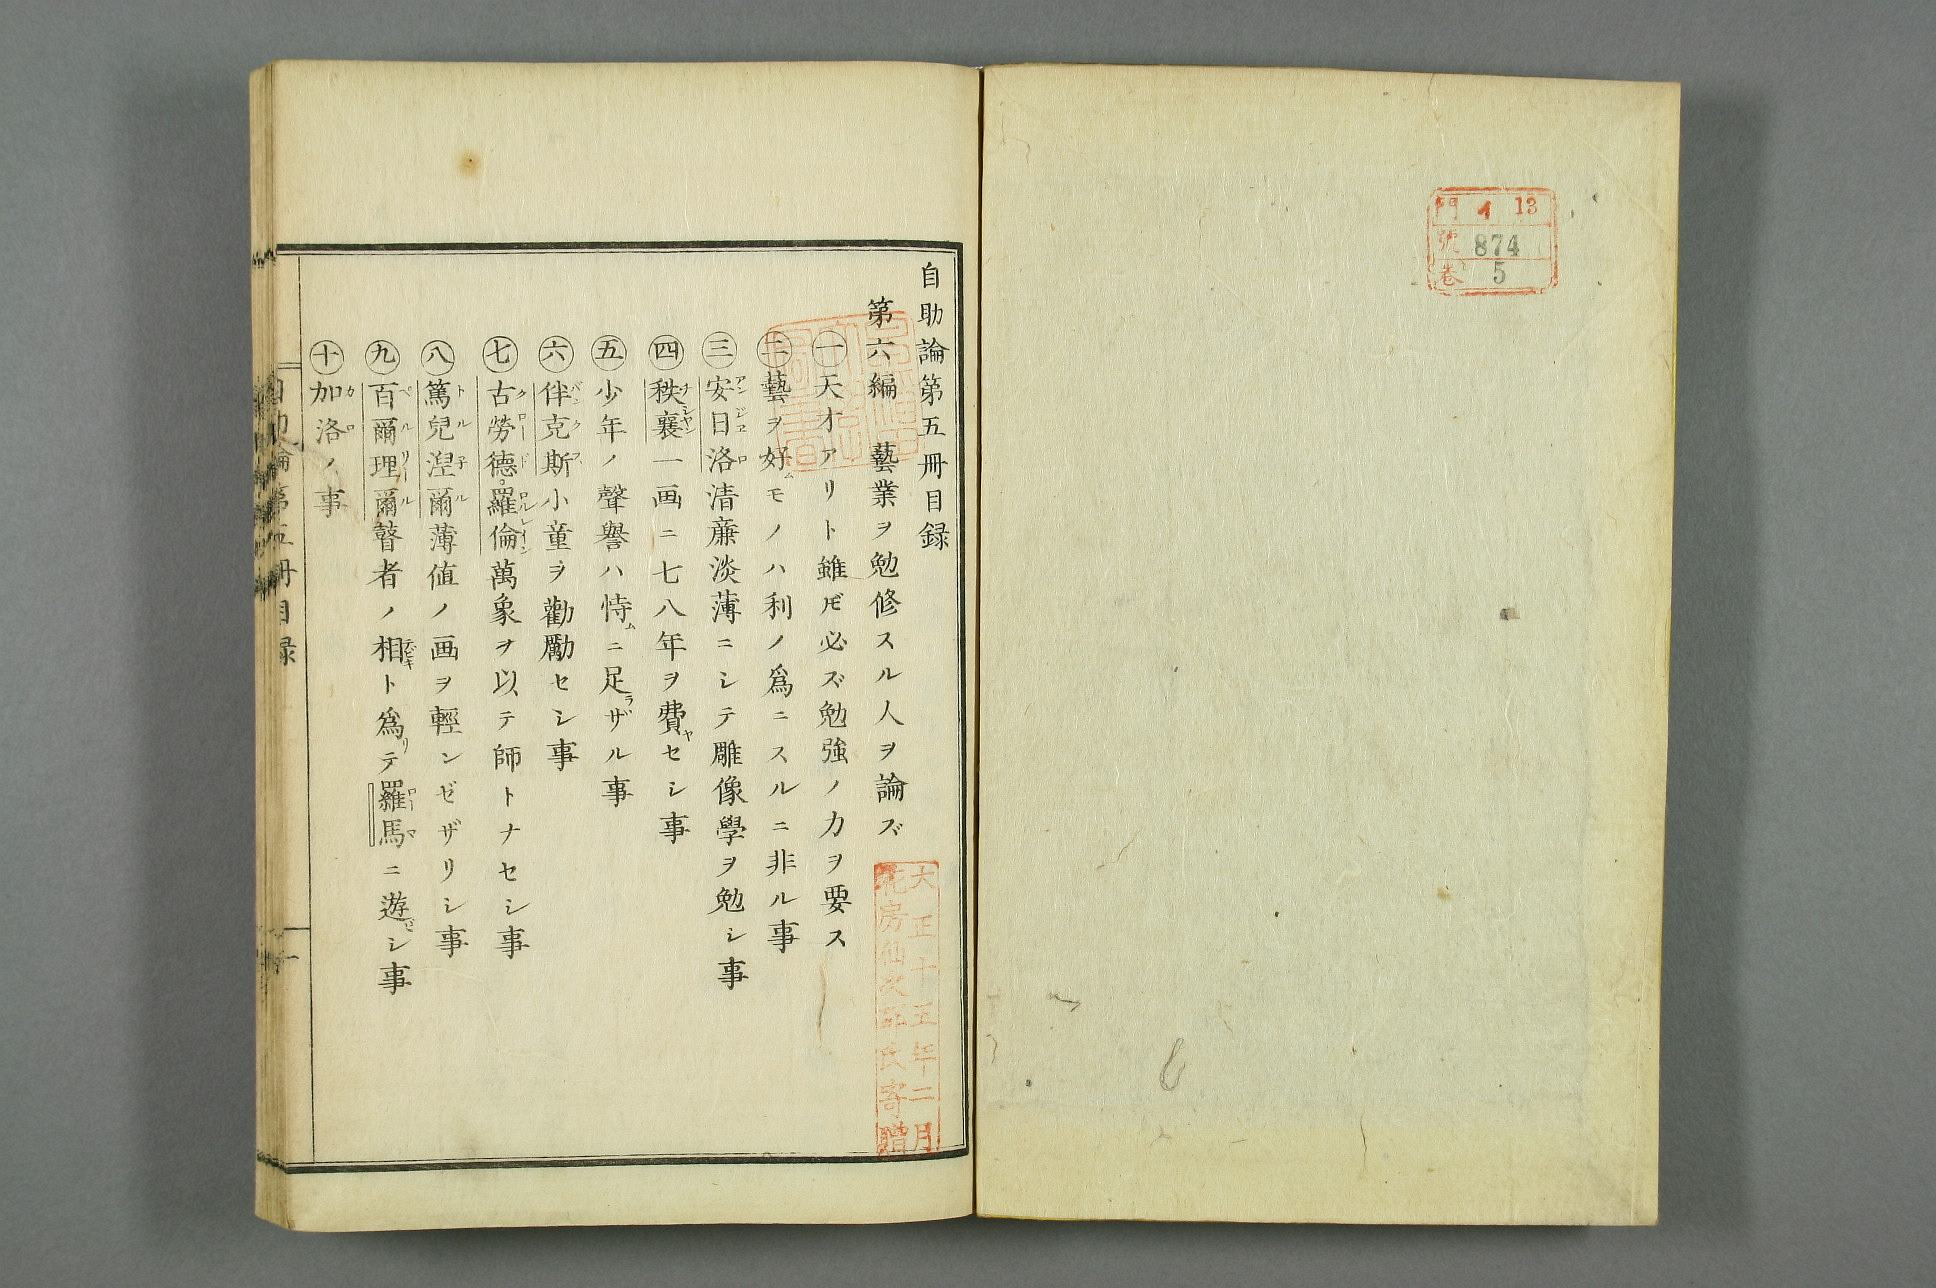 門 イ 13
號 874
巻 5
自助論第五冊目録
第六編 藝業ヲ勉修スル人ヲ論ズ
㊀天才アリト雖𪜈必ズ勉強ノ力ヲ要ス
㊁藝ヲ好ムモノハ利ノ爲ニスルニ非ル事
㊂安日洛清廉淡薄ニシテ雕像學ヲ勉シ事
㊃秩襄一画ニ七八年ヲ費ヤセシ事
㊄少年ノ聲譽ハ恃ムニ足ラザル事
㊅伴克斯小童ヲ勸勵セシ事
㊆古勞德羅倫萬象ヲ以テ師トナセシ事
㊇篤兒涅爾薄値ノ画ヲ輕ンゼザリシ事
㊈百爾理爾瞽者ノ相ト爲リテ羅馬ニ遊ビシ事
㊉加洛ノ事
自助論第五冊目録
一
大正十五年二月
花房仙次郎氏寄贈
6